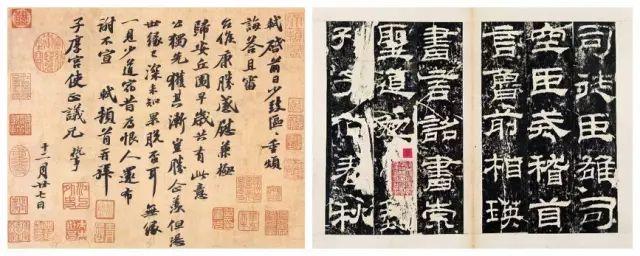 軾啓前日少致區區重煩
誨答且審
台候康勝感慰兼極
歸安丘園早歲共有此意
公獨先獲其漸豈勝企羨但恐
世緣已深未知果脫否耳無緣
一見少道宿昔為恨人還布
謝不宣軾頓首再拜
子厚宮使正議兄執事
十二月廿七日
司徒臣雄司
空臣戒稽首
言魯前相瑛
書言詔書崇
聖道
孔子作春秋